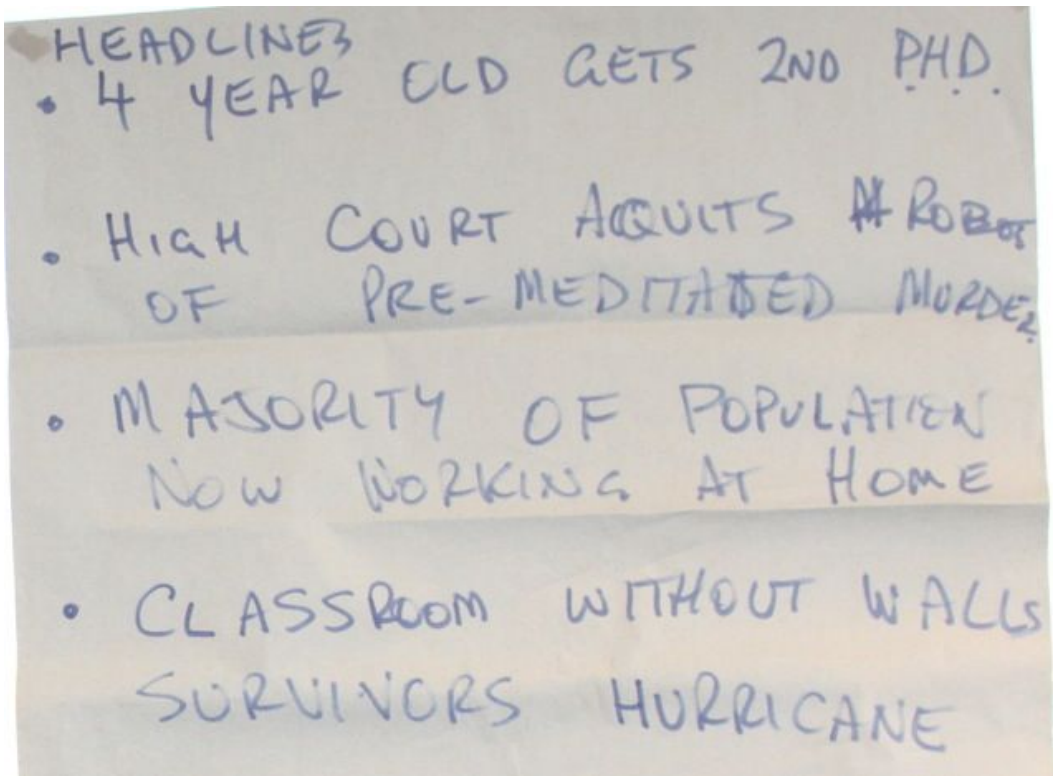 HEADLINES
• 4 YEAR OLD GETS 2ND P.H.D.
• HIGH COURT ACQUITS ROBOT
OF PRE-MEDITATED MURDER
• MAJORITY OF POPULATION
NOW WORKING AT HOME
• CLASSROOM WITHOUT WALLS
SURVIVORS HURRICANE